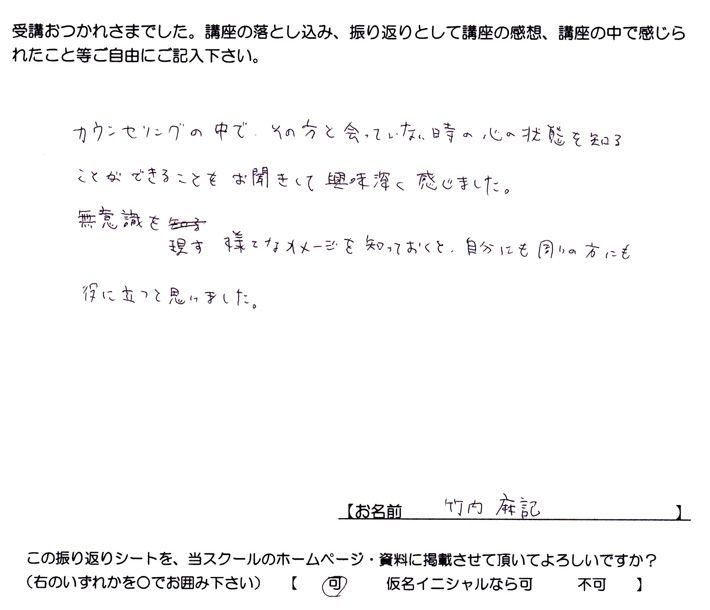 受講おつかれさまでした。講座の落とし込み、振り返りとして講座の感想、講座の中で感じら
れたこと等ご自由にご記入下さい。
カウンセリングの中で、その方と会っていない時の心の状態を知る
ことができることもお聞きして興味深く感じました。
無意識を知る
現す様々なイメージを知っておくと、自分にも周りの方にも
役に立つと思いました。
【お名前 竹内 麻記 】
この振り返りシートを、当スクールのホームページ・資料に掲載させて頂いてよろしいですか？
（右のいずれかを〇でお囲み下さい） 【 可 仮名イニシャルなら可 不可 】